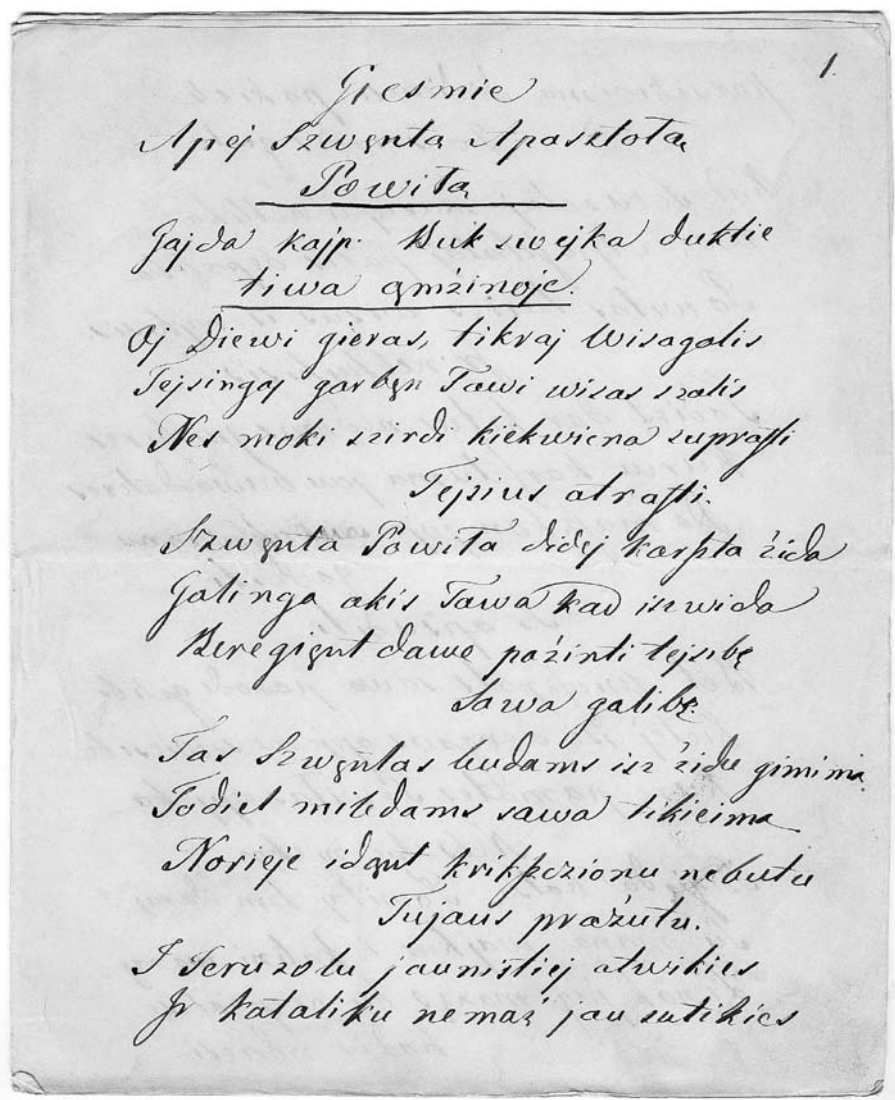 1.
Giesmie
Apej Szwęnta Aposztołą
Powiłą
Gajda kajp. Buk swejka duktie
tiwa ąmżinoje.
Oj Diewi gieras, tikraj Wisagalis
Tejsingaj garbęn Tawi wisas szalis
Nes moki szirdi kiekwiena suprasti
Tejsius atrasti.
Szwęnta Powiła didej karszta żida
Galinga akis Tawa kad iszwida
Beregięnt dawe pażinti tejsibę
Sawa galibę.
Tas Szwęntas budams isz żidu gimima
Todiel miledams sawa tikieima
Norieje idąnt krikszczionu nebutu
Tujaus prażutu.
I Jeruzolu jaunistiej atwikies
Ir kataliku nemaż jau sutikies